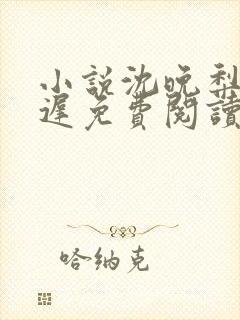 小説沈晚梨
遲免費閱讀
哈纳克